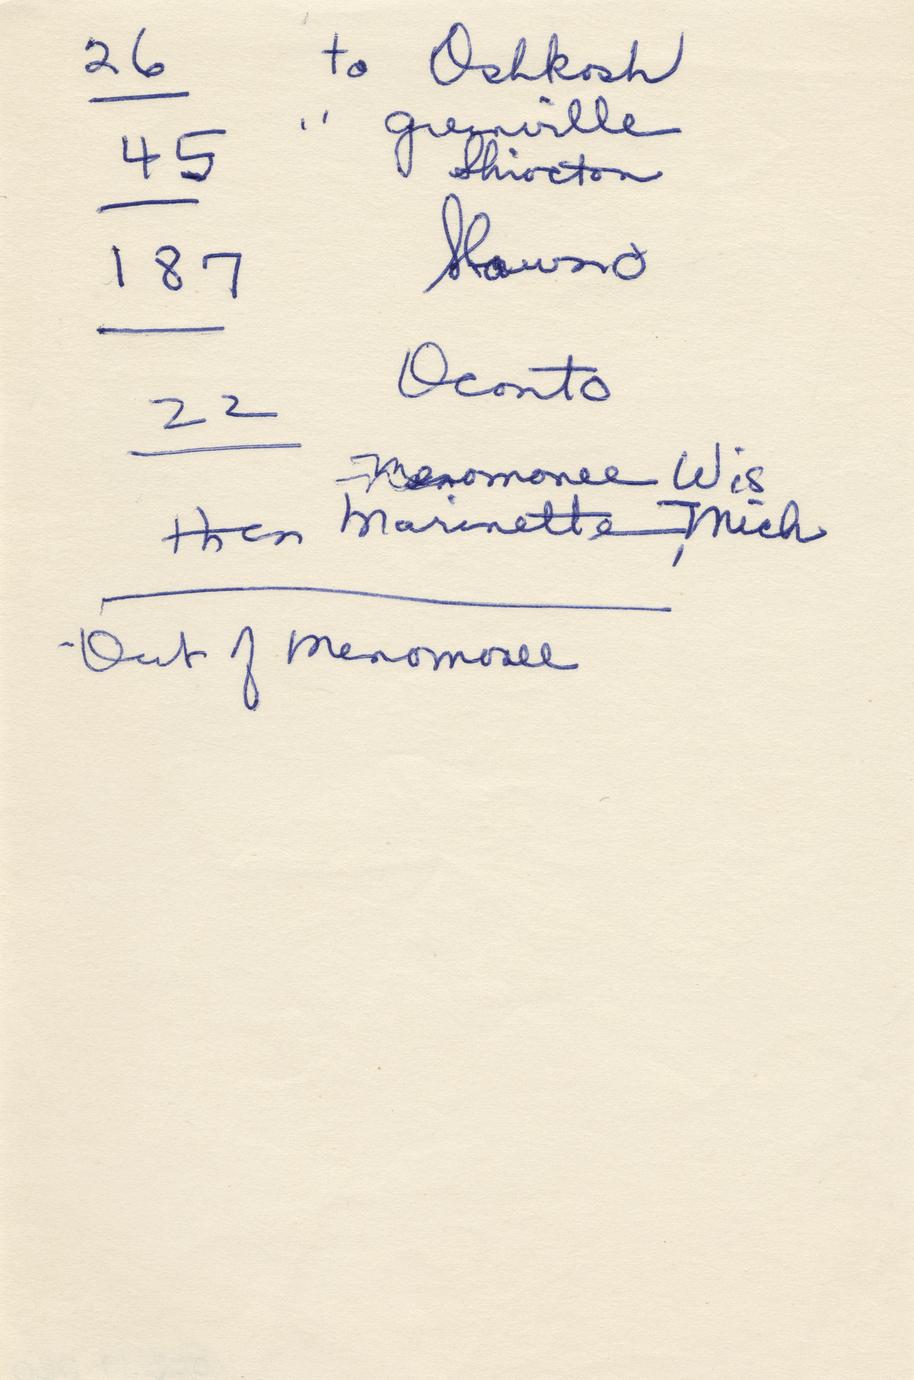 26 to Oshkosh
45 " Greenville
Shiocton
187 Shawano
22 Oconto
Menomonee Wis
then Marinette, Mich
Out of Menomonee